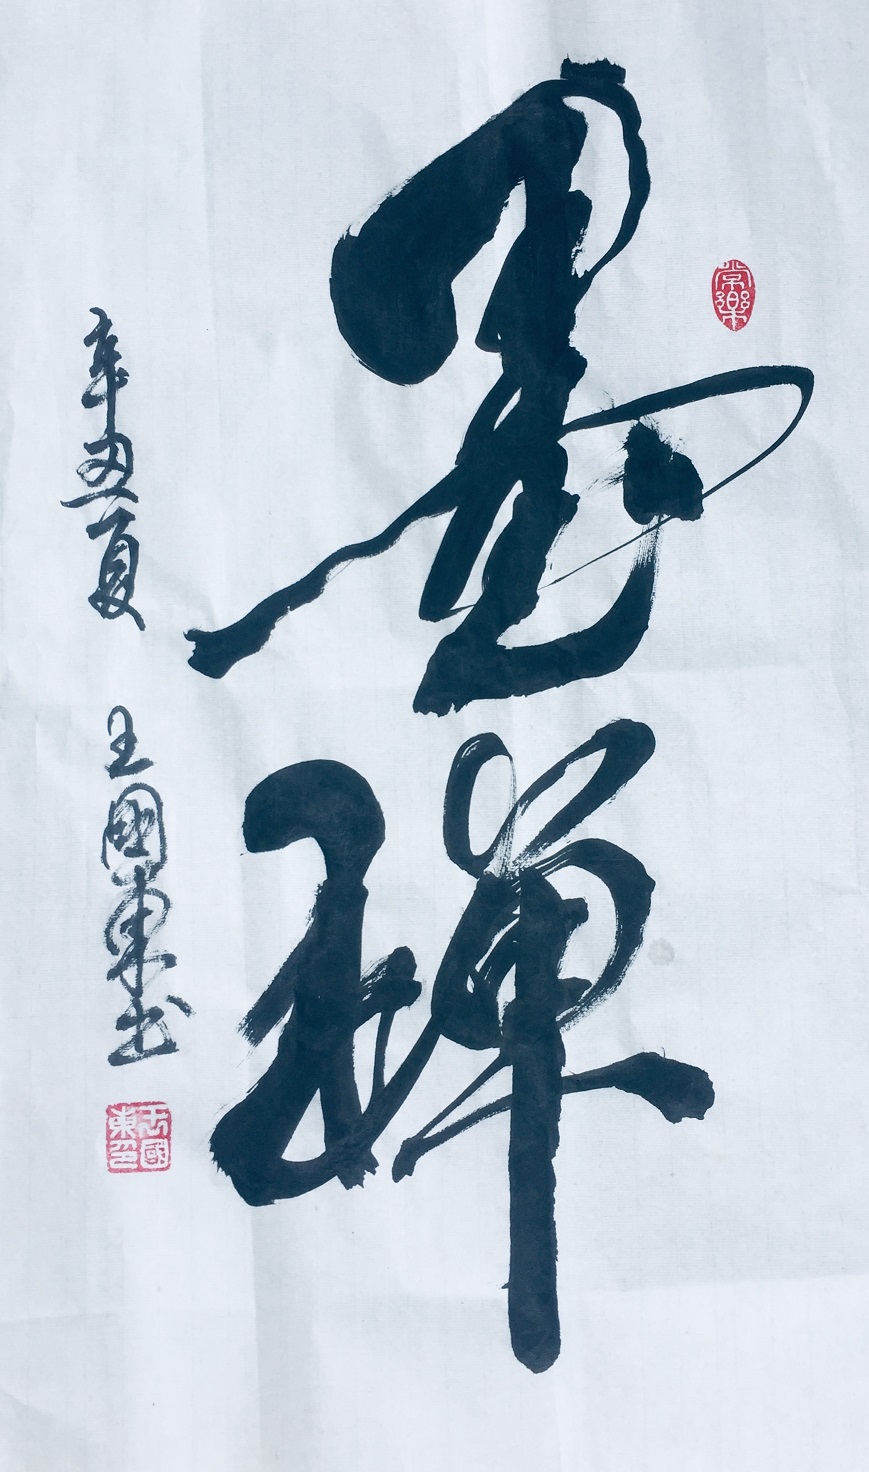 常樂
墨禪
辛丑夏 王國東书
王國東印